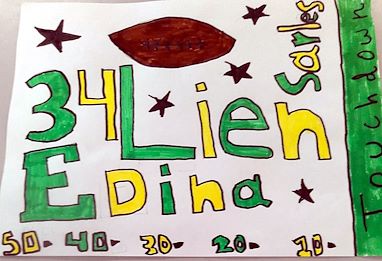 Sarles
34 Lien
Edina
50- 40- 30- 20- 10-
Touchdown